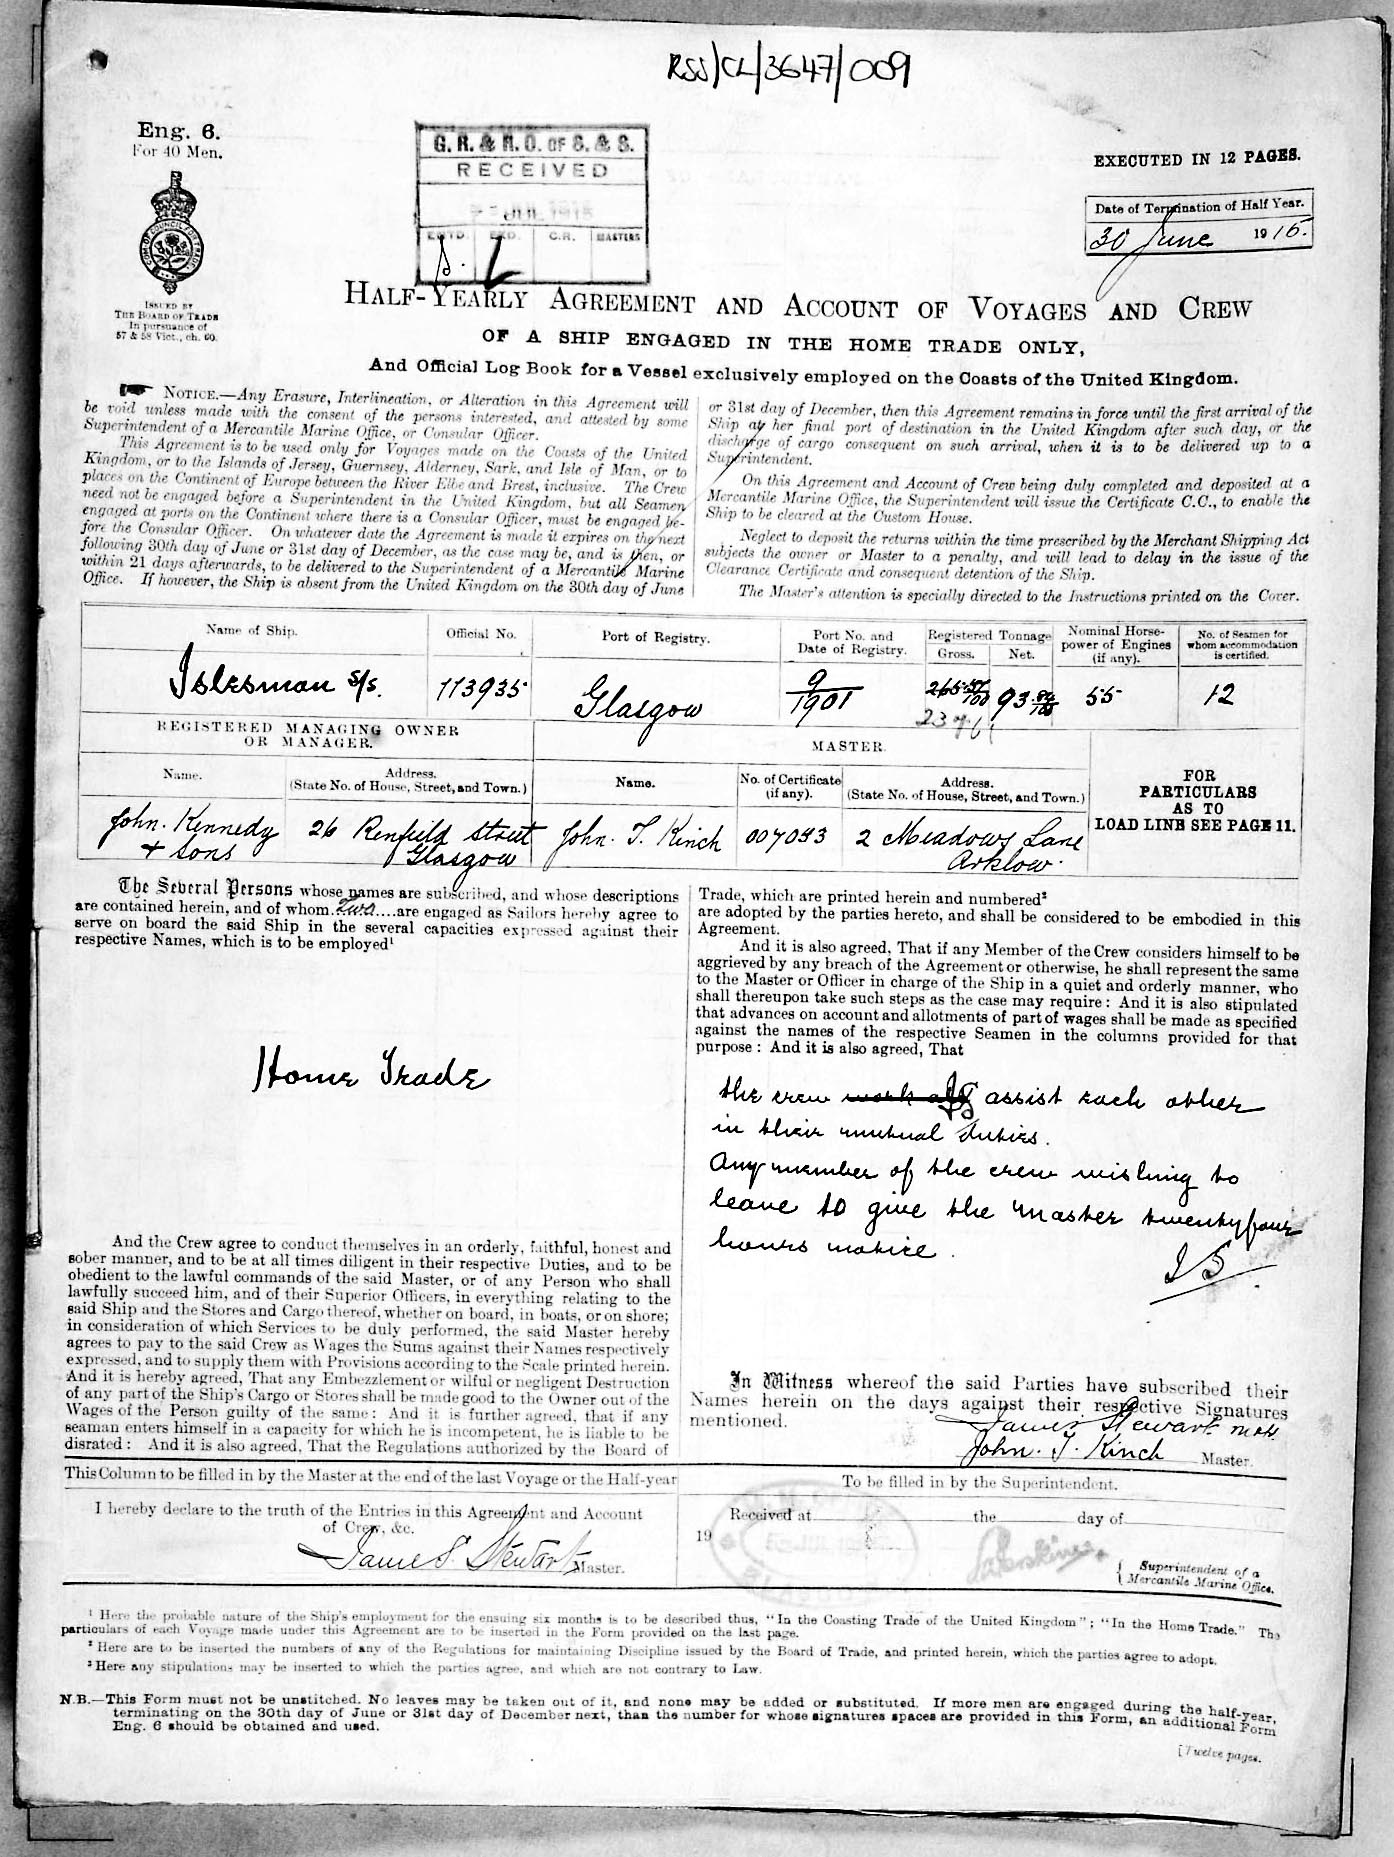 RSS/CL/3647/009
Eng. 6.
For 40 Men.
G. R. & R. O. OF S. & S.
RECEIVED
JUL 1915
ENTD. EXD. C.R. MASTERS
EXECUTED IN 12 PAGES.
Date of Termination of Half Year.
30 June 1915.
ISSUED BY
THE BOARD OF TRADE
In pursuance of
57 & 58 Vict., ch. 60.
HALF-YEARLY AGREEMENT AND ACCOUNT OF VOYAGES AND CREW
OF A SHIP ENGAGED IN THE HOME TRADE ONLY,
And Official Log Book for a Vessel exclusively employed on the Coasts of the United Kingdom.
NOTICE.—Any Erasure, Interlineation, or Alteration in this Agreement will
be void unless made with the consent of the persons interested, and attested by some
Superintendent of a Mercantile Marine Office, or Consular Officer.
This Agreement is to be used only for Voyages made on the Coasts of the United
Kingdom, or to the Islands of Jersey, Guernsey, Alderney, Sark, and Isle of Man, or to
places on the Continent of Europe between the River Elbe and Brest, inclusive. The Crew
need not be engaged before a Superintendent in the United Kingdom, but all Seamen
engaged at ports on the Continent where there is a Consular Officer, must be engaged be-
fore the Consular Officer. On whatever date the Agreement is made it expires on the next
following 30th day of June or 31st day of December, as the case may be, and is then, or
within 21 days afterwards, to be delivered to the Superintendent of a Mercantile Marine
Office. If however, the Ship is absent from the United Kingdom on the 30th day of June
or 31st day of December, then this Agreement remains in force until the first arrival of the
Ship at her final port of destination in the United Kingdom after such day, or the
discharge of cargo consequent on such arrival, when it is to be delivered up to a
Superintendent.
On this Agreement and Account of Crew being duly completed and deposited at a
Mercantile Marine Office, the Superintendent will issue the Certificate C.C., to enable the
Ship to be cleared at the Custom House.
Neglect to deposit the returns within the time prescribed by the Merchant Shipping Act
subjects the owner or Master to a penalty, and will lead to delay in the issue of the
Clearance Certificate and consequent detention of the Ship.
The Master's attention is specially directed to the Instructions printed on the Cover.
Name of Ship. Official No. Port of Registry. Port No. and Date of Registry. Registered Tonnage Gross. Net. Nominal Horse-power of Engines (if any). No. of Seamen for whom accommodation is certified.
Islesman s/s. 113935 Glasgow 9/1901 265 57/100 93 84/100 55 12
REGISTERED MANAGING OWNER
OR MANAGER.
MASTER.
Name. Address. (State No. of House, Street, and Town.) Name. No. of Certificate (if any). Address. (State No. of House, Street, and Town.)
FOR
PARTICULARS
AS TO
LOAD LINE SEE PAGE 11.
John. Kennedy 26 Renfield Street John. T. Kinch 007053 2 Meadows Lane
+ Sons Glasgow Arklow.
The Several Persons whose names are subscribed, and whose descriptions
are contained herein, and of whom Two are engaged as Sailors hereby agree to
serve on board the said Ship in the several capacities expressed against their
respective Names, which is to be employed¹
Home Trade
And the Crew agree to conduct themselves in an orderly, faithful, honest and
sober manner, and to be at all times diligent in their respective Duties, and to be
obedient to the lawful commands of the said Master, or of any Person who shall
lawfully succeed him, and of their Superior Officers, in everything relating to the
said Ship and the Stores and Cargo thereof, whether on board, in boats, or on shore;
in consideration of which Services to be duly performed, the said Master hereby
agrees to pay to the said Crew as Wages the Sums against their Names respectively
expressed, and to supply them with Provisions according to the Scale printed herein.
And it is hereby agreed, That any Embezzlement or wilful or negligent Destruction
of any part of the Ship's Cargo or Stores shall be made good to the Owner out of the
Wages of the Person guilty of the same: And it is further agreed, that if any
seaman enters himself in a capacity for which he is incompetent, he is liable to be
disrated: And it is also agreed, That the Regulations authorized by the Board of
Trade, which are printed herein and numbered²
are adopted by the parties hereto, and shall be considered to be embodied in this
Agreement.
And it is also agreed, That if any Member of the Crew considers himself to be
aggrieved by any breach of the Agreement or otherwise, he shall represent the same
to the Master or Officer in charge of the Ship in a quiet and orderly manner, who
shall thereupon take such steps as the case may require: And it is also stipulated
that advances on account and allotments of part of wages shall be made as specified
against the names of the respective Seamen in the columns provided for that
purpose: And it is also agreed, That
the crew assist each other
in their mutual duties.
Any member of the crew wishing to
leave to give the master twentyfour
hours notice.
JS
In Witness whereof the said Parties have subscribed their
Names herein on the days against their respective Signatures
mentioned.
James Stewart
John. T. Kinch Master.
This Column to be filled in by the Master at the end of the last Voyage or the Half-year
I hereby declare to the truth of the Entries in this Agreement and Account
of Crew, &c.
James Stewart Master.
To be filled in by the Superintendent.
Received at the day of
19
Superintendent of a
Mercantile Marine Office.
¹ Here the probable nature of the Ship's employment for the ensuing six months is to be described thus, "In the Coasting Trade of the United Kingdom"; "In the Home Trade." The
particulars of each Voyage made under this Agreement are to be inserted in the Form provided on the last page.
² Here are to be inserted the numbers of any of the Regulations for maintaining Discipline issued by the Board of Trade, and printed herein, which the parties agree to adopt.
³ Here any stipulations may be inserted to which the parties agree, and which are not contrary to Law.
N.B.—This Form must not be unstitched. No leaves may be taken out of it, and none may be added or substituted. If more men are engaged during the half-year,
terminating on the 30th day of June or 31st day of December next, than the number for whose signatures spaces are provided in this Form, an additional Form
Eng. 6 should be obtained and used.
[Twelve pages.